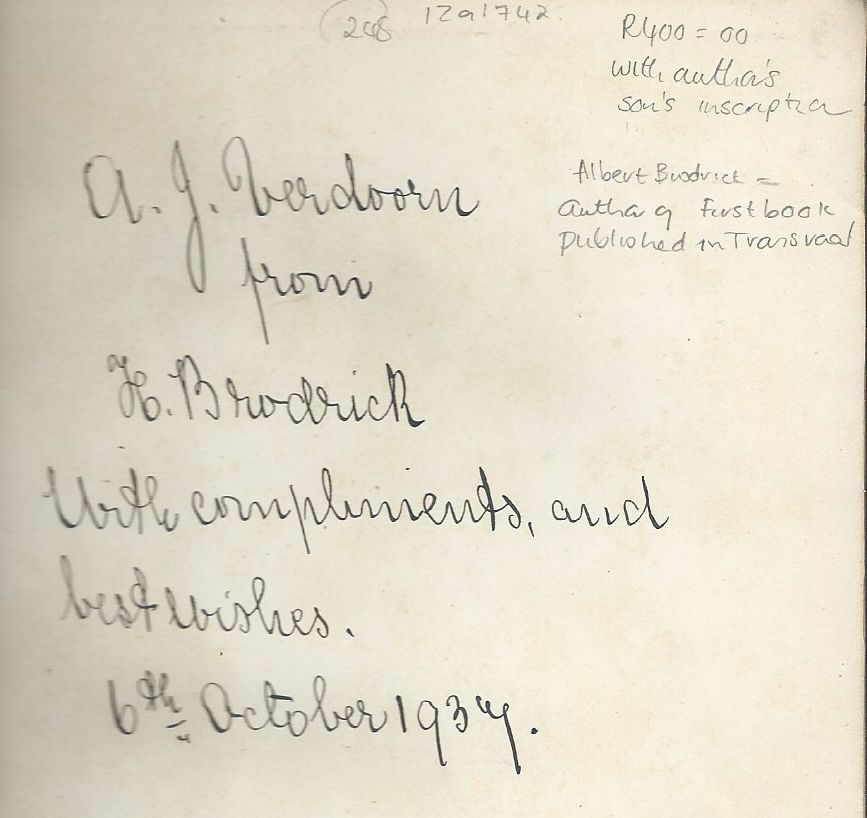 208 1291742
R400 = 00
with author's
son's inscription
Albert Brodrick =
author of first book
published in Transvaal
A. J. Verdoorn
from
H. Brodrick
With compliments, and
best wishes.
6th October 1937.